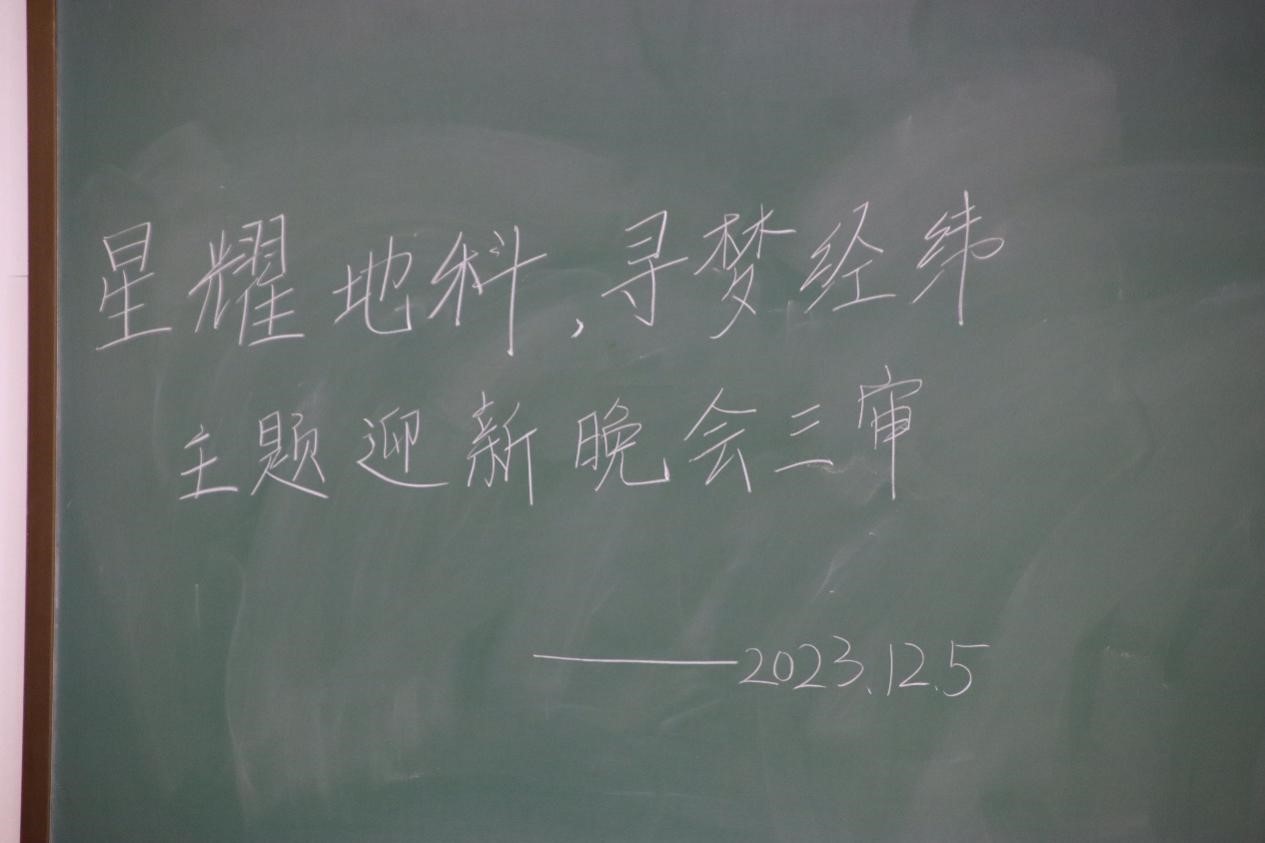 星耀地科,寻梦经纬
主题迎新晚会三审
——2023.12.5